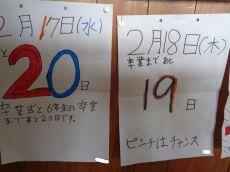 2月17日(水)
と
20
日
卒業式と6年生の卒業
まであと20日です。
2月18日(木)
卒業まであと
19
日
ピンチはチャンス